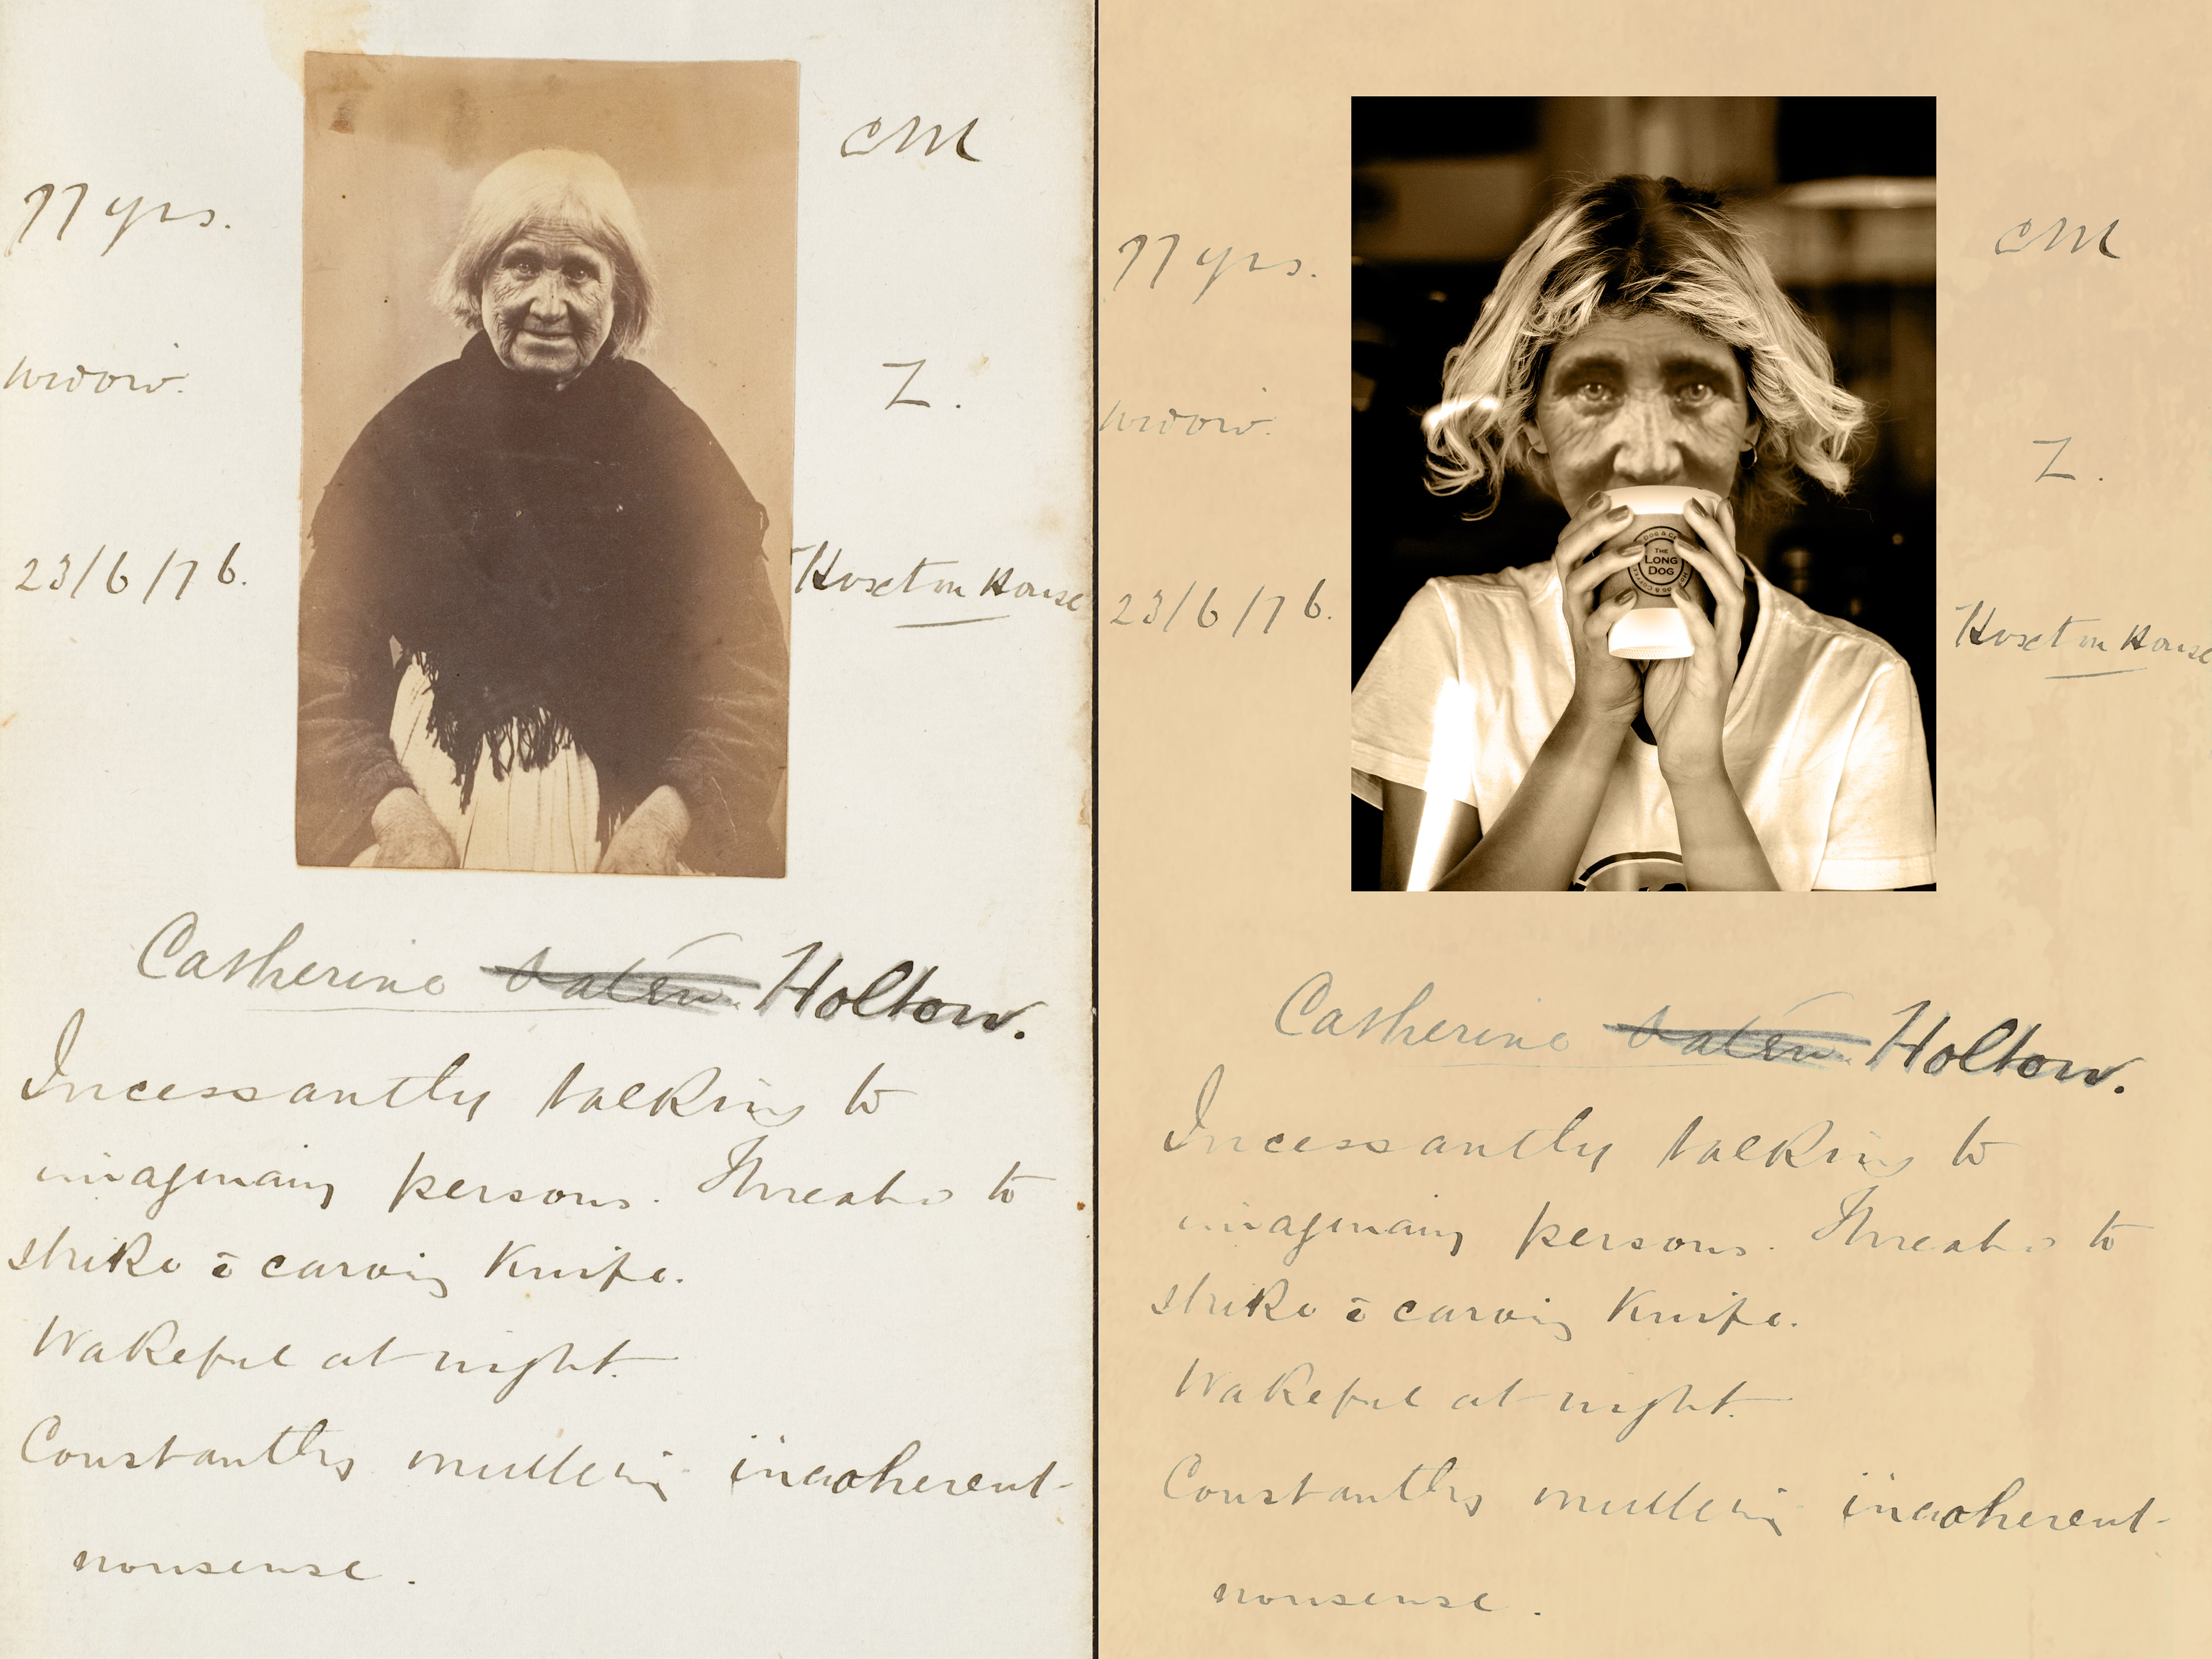 CM
77 yrs.
widow.
Z.
23/6/76.
Hoxton House
Catherine Holton.
Incessantly talking to
imaginary persons. Threatens to
strike c̄ carving Knife.
Wakeful at night.
Constantly muttering incoherent
nonsense.
CM
77 yrs.
widow.
Z.
23/6/76.
Hoxton House
THE
LONG
DOG
Catherine Holton.
Incessantly talking to
imaginary persons. Threatens to
strike c̄ carving Knife.
Wakeful at night.
Constantly muttering incoherent
nonsense.